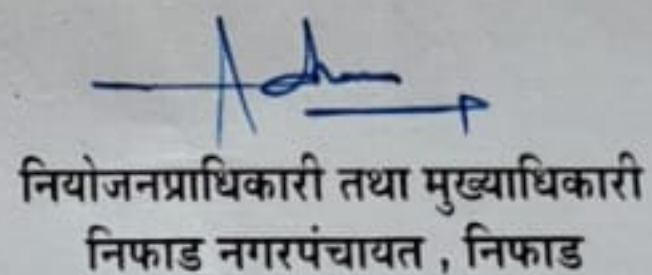 नियोजनप्राधिकारी तथा मुख्याधिकारी
निफाड नगरपंचायत , निफाड